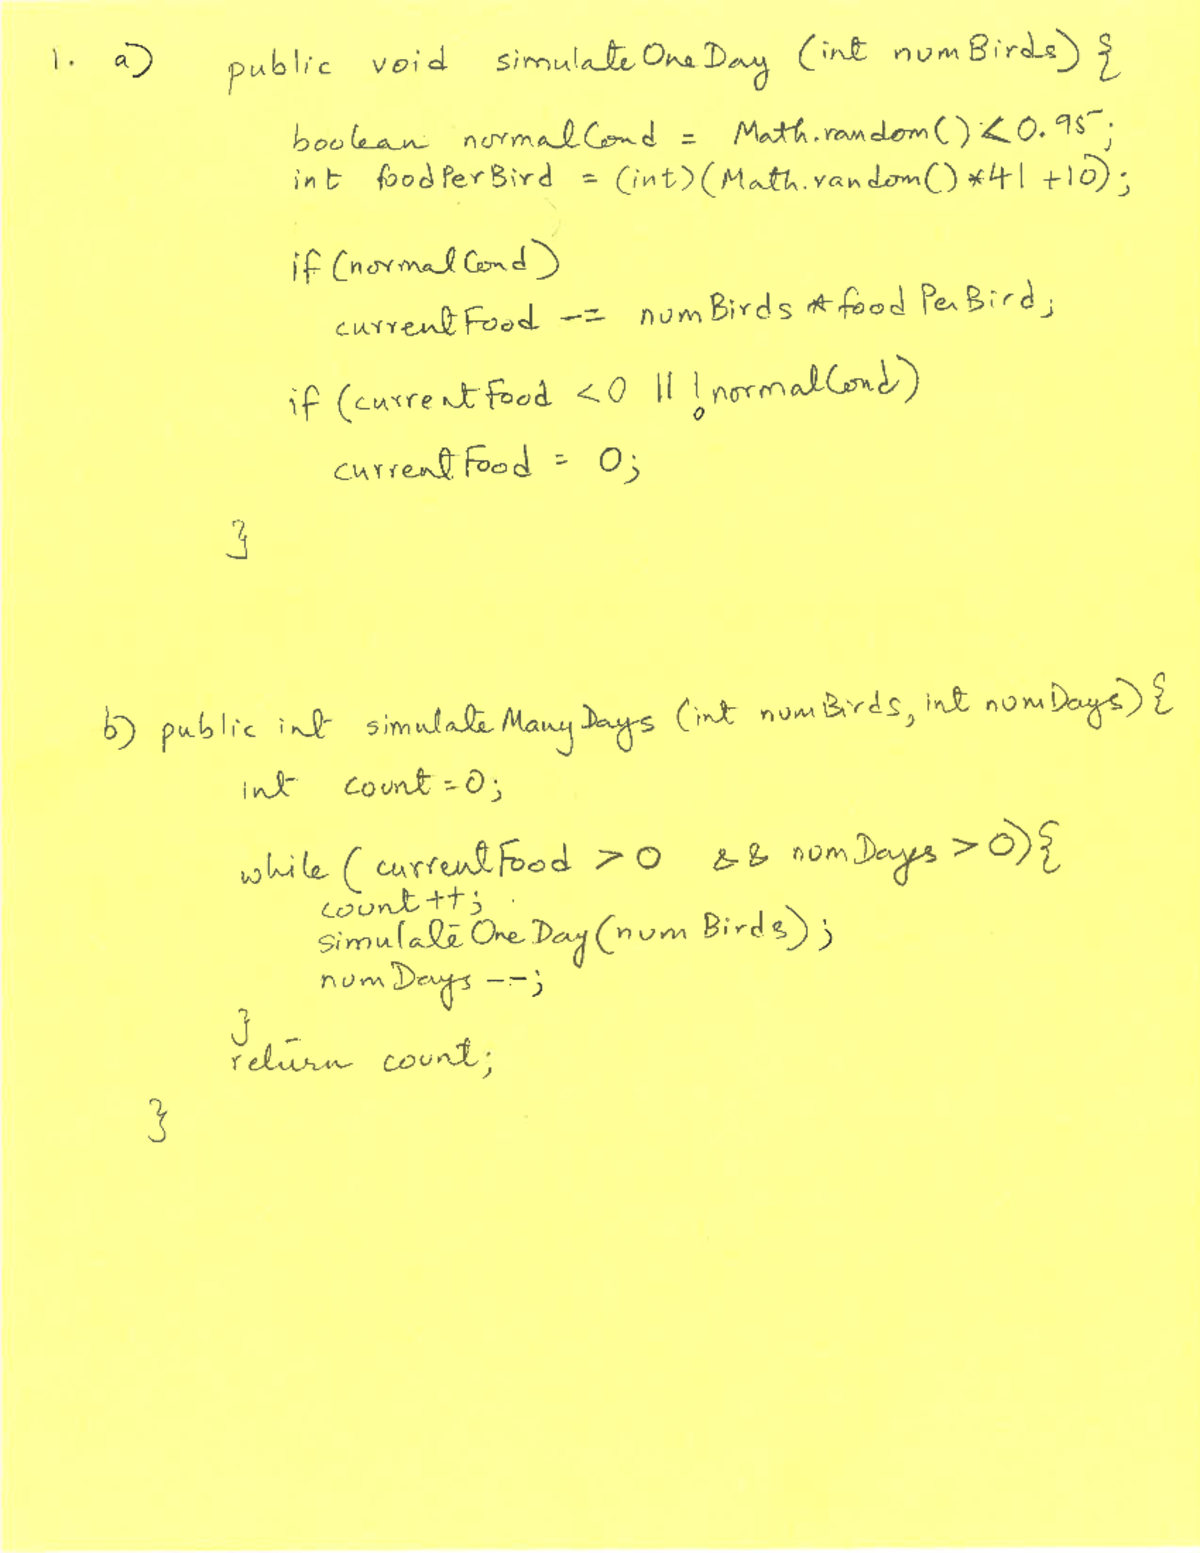 1. a) public void simulateOneDay (int numBirds) {
boolean normalCond = Math.random() < 0.95;
int foodPerBird = (int)(Math.random() *41 +10);
if (normalCond)
currentFood -= numBirds * foodPerBird;
if (currentFood <0 || !normalCond)
currentFood = 0;
}
b) public int simulateManyDays (int numBirds, int numDays) {
int count=0;
while ( currentFood > 0 && numDays > 0) {
count ++;
simulateOneDay (num Birds);
numDays --;
}
return count;
}